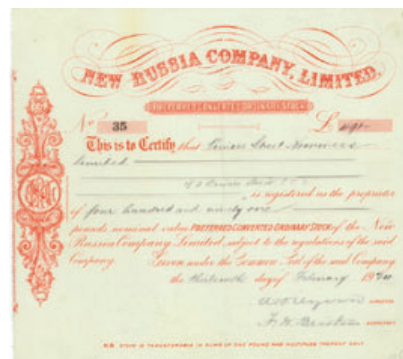 NEW RUSSIA COMPANY, LIMITED.
PREFERRED CONVERTED ORDINARY STOCK
No 35 £ 491
This is to Certify that Princes Street Nominees
Limited
E.C.2.
is registered as the proprietor
of four hundred and ninety one
pounds nominal value PREFERRED CONVERTED ORDINARY STOCK of the New
Russia Company Limited, subject to the regulations of the said
Company. Given under the Common Seal of the said Company
the thirteenth day of February 19
DIRECTOR
SECRETARY
N.B. STOCK IS TRANSFERABLE IN SUMS OF ONE POUND AND MULTIPLES THEREOF ONLY